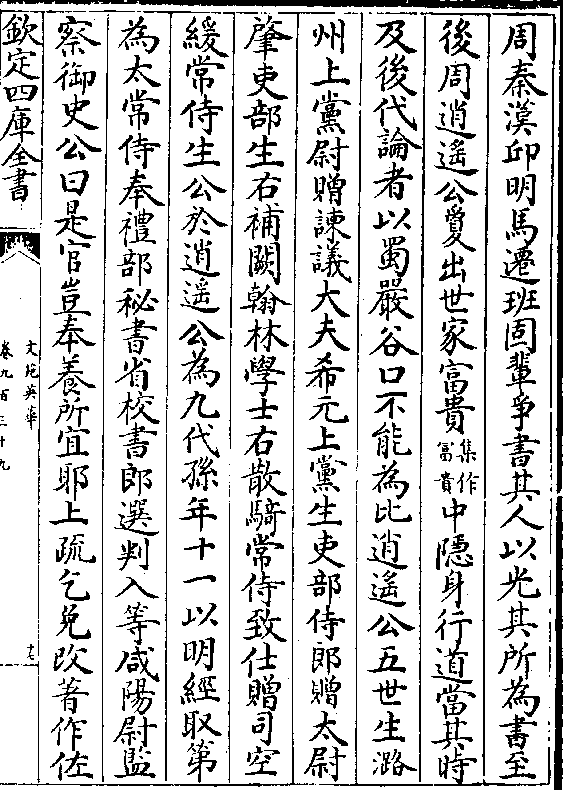 周秦漢邱明馬遷班固輩爭書其人以光其所為書至
後周逍遙公敻出世家富貴集作富貴中隱身行道當其時
及後代論者以蜀嚴谷口不能為比逍遙公五世生潞
州上黨尉贈諫議大夫希元上黨生吏部侍郎贈太尉
肇吏部生右補闕翰林學士右散騎常侍致仕贈司空
綬常侍生公於逍遙公為九代孫年十一以明經取第
為太常侍奉禮部秘書省校書郎選判入等咸陽尉監
察御史公曰是官豈奉養所宜耶上疏乞免改著作佐
欽定四庫全書
文苑英華
卷九百三十九